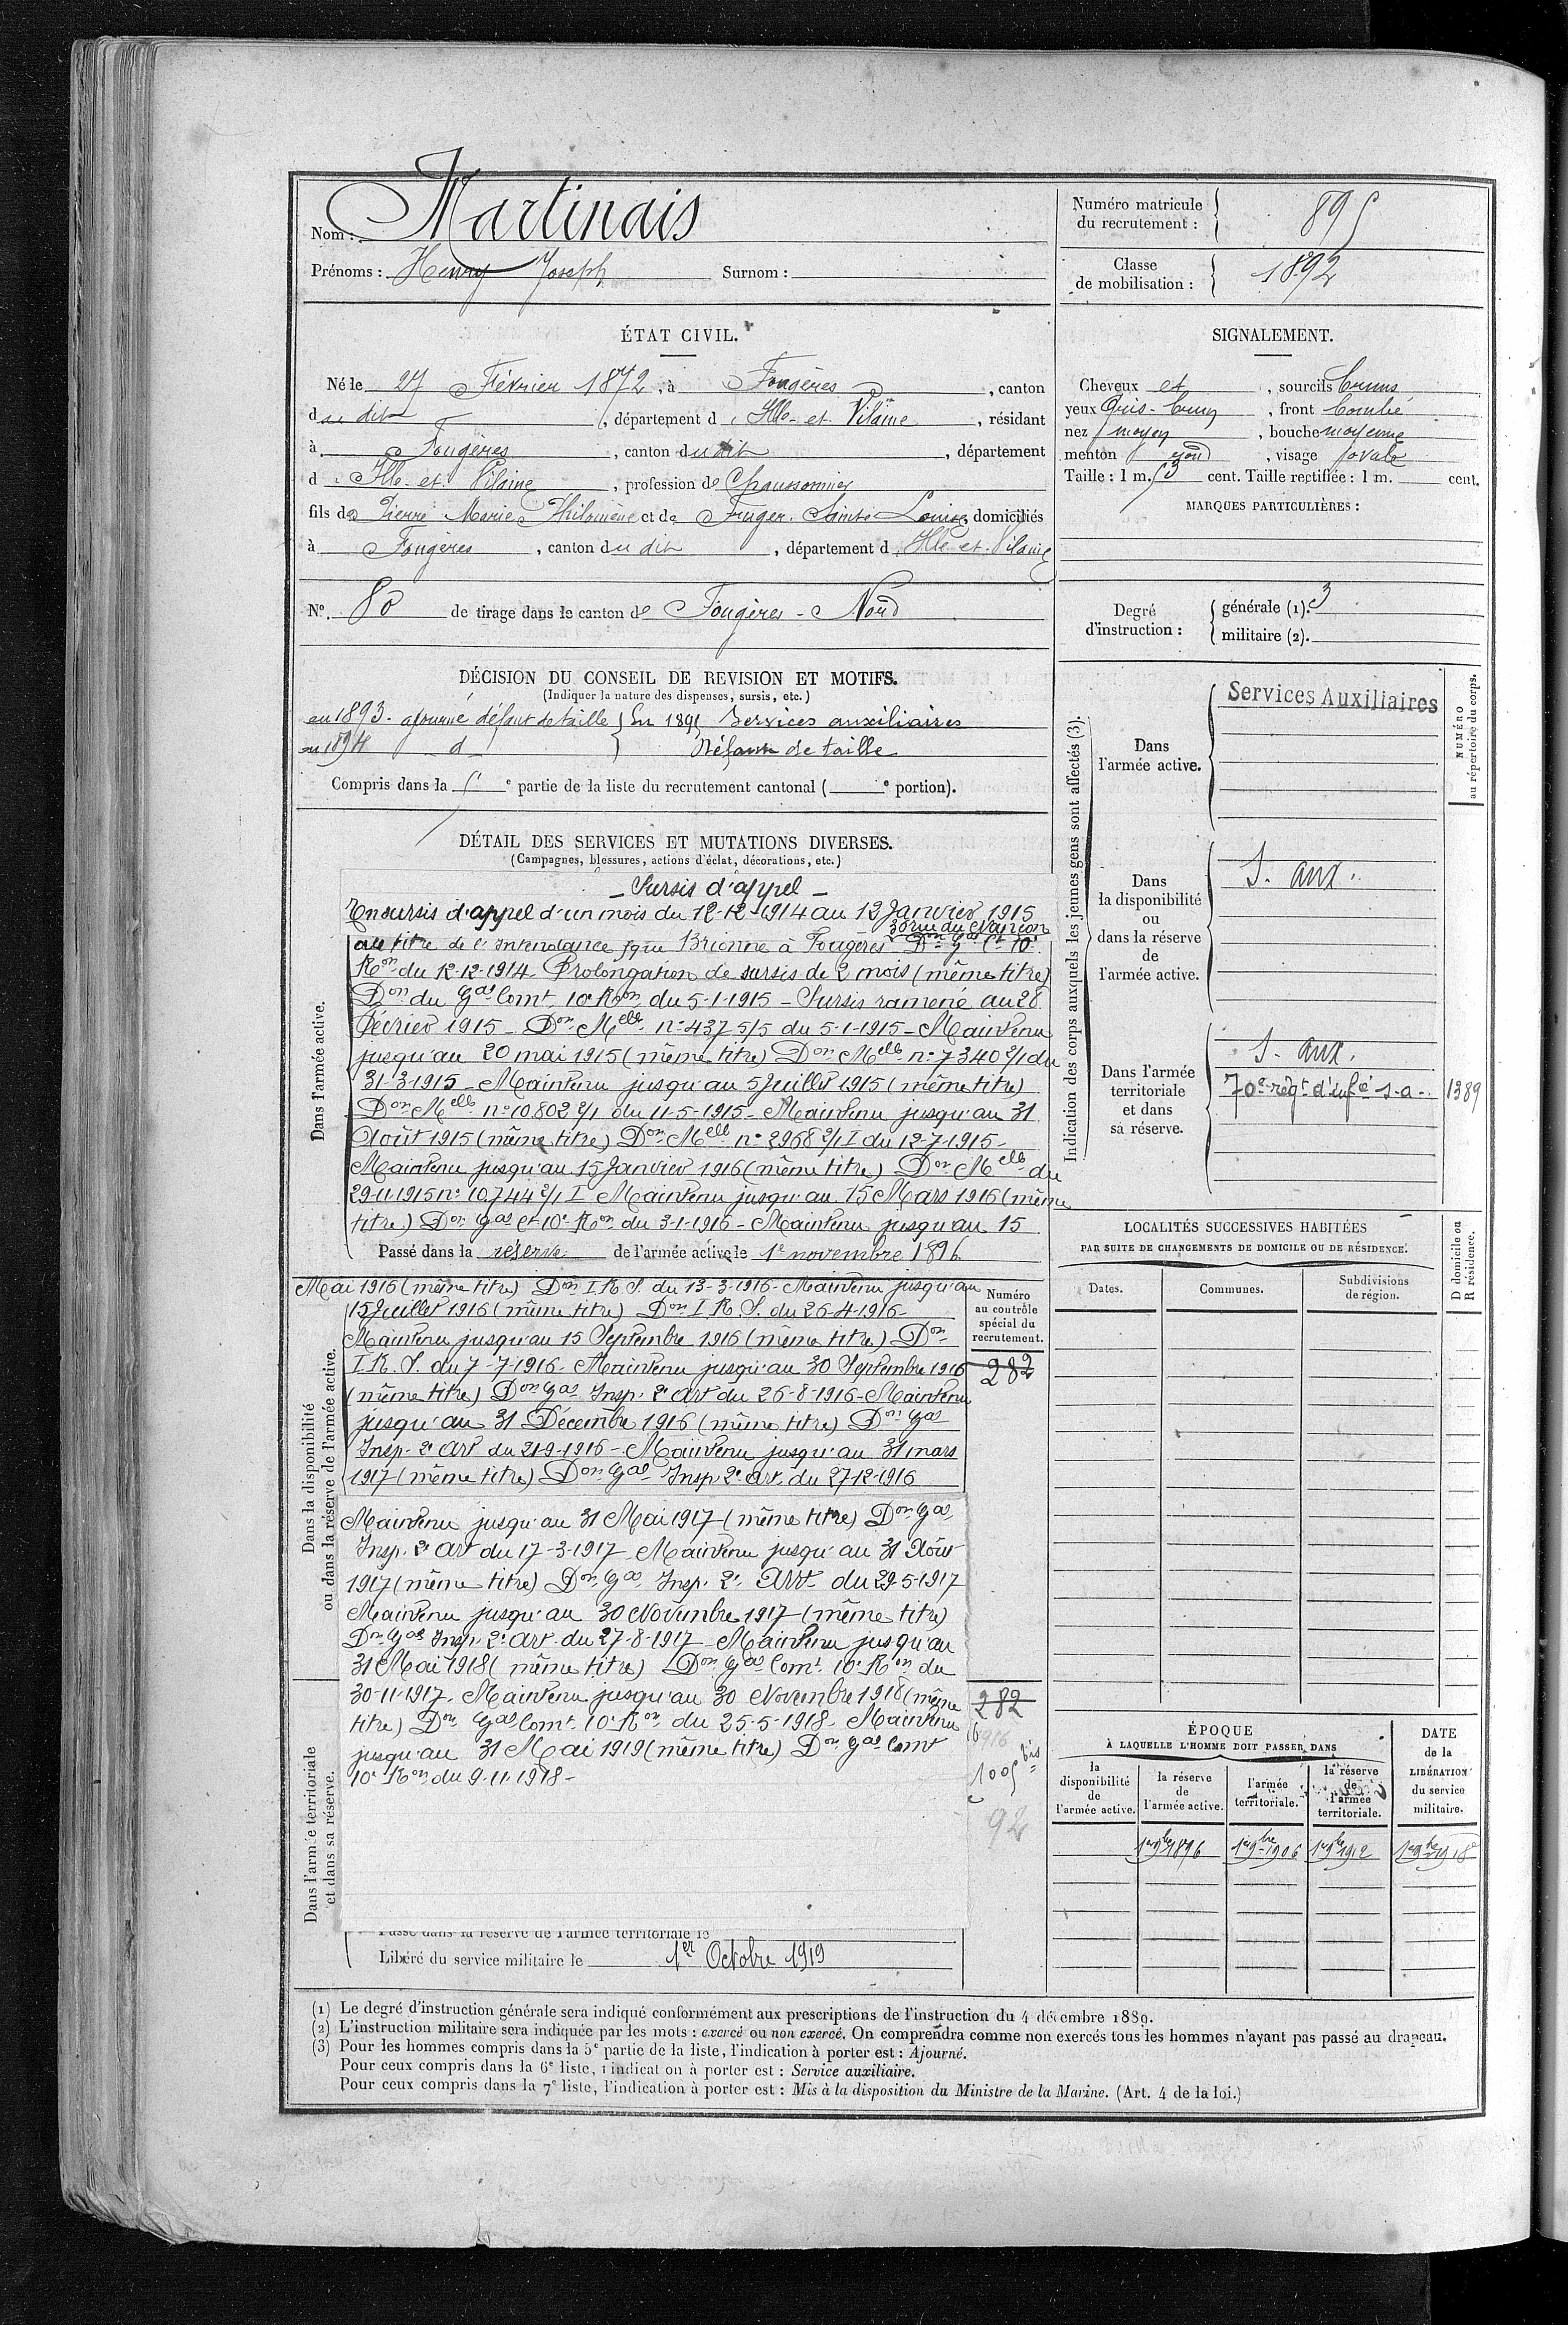 Nom : Martinais
Prénoms : Henry Joseph Surnom :
Numéro matricule du recrutement : 895
Classe de mobilisation : 1892
ÉTAT CIVIL.
Né le 27 Février 1872, à Fougères, canton
du dit, département d'Ille-et-Vilaine, résidant
à Fougères, canton du dit, département
d'Ille-et-Vilaine, profession de Chaussonnier
fils de Pierre Marie Philomène et de Fruger Sainte Louise, domiciliés
à Fougères, canton du dit, département d'Ille-et-Vilaine
N° 80 de tirage dans le canton de Fougères-Nord
SIGNALEMENT.
Cheveux et, sourcils bruns
yeux Gris-brun, front bombé
nez moyen, bouche moyenne
menton rond, visage ovale
Taille : 1 m. 53 cent. Taille rectifiée : 1 m. cent.
MARQUES PARTICULIÈRES :
Degré d'instruction :
générale (1). 3
militaire (2).
DÉCISION DU CONSEIL DE REVISION ET MOTIFS.
(Indiquer la nature des dispenses, sursis, etc.)
en 1893. ajourné défaut de taille } En 1895 Services auxiliaires
en 1894 d } Défaut de taille
Compris dans la e partie de la liste du recrutement cantonal ( e portion).
DÉTAIL DES SERVICES ET MUTATIONS DIVERSES.
(Campagnes, blessures, actions d'éclat, décorations, etc.)
Dans l'armée active.
- Sursis d'appel -
En sursis d'appel d'un mois du 12-12-1914 au 12 Janvier 1915
30 rue du Nançon
au titre de l'Intendance fque Brionne à Fougères Don Gal Ct 10e
Ron du 12-12-1914. Prolongation de sursis de 2 mois (même titre)
Don du Gal Comt 10e Ron du 5-1-1915 - Sursis ramené au 28
Février 1915 - Don Melle n° 437 5/5 du 5-1-1915 - Maintenu
jusqu'au 20 mai 1915 (même titre) Don Melle n° 7340 2/1 du
31-3-1915 - Maintenu jusqu'au 5 Juillet 1915 (même titre)
Don Melle n° 10.802 2/1 du 11-5-1915 - Maintenu jusqu'au 31
Août 1915 (même titre) Don Melle n° 2968 2/1 I du 12-7-1915 -
Maintenu jusqu'au 15 Janvier 1916 (même titre) Don Melle du
29-11-1915 n° 10.744 2/1 I Maintenu jusqu'au 15 Mars 1916 (même
titre) Don Gal Ct 10e Ron du 3-1-1916 - Maintenu jusqu'au 15
Passé dans la réserve de l'armée active le 1er novembre 1896
Dans la disponibilité ou dans la réserve de l'armée active.
Mai 1916 (même titre) Don I.R.S. du 13-3-1916 - Maintenu jusqu'au
15 Juillet 1916 (même titre) Don I.R.S. du 26-4-1916 -
Maintenu jusqu'au 15 Septembre 1916 (même titre) Don
I.R.S. du 7-7-1916 - Maintenu jusqu'au 30 Septembre 1916
(même titre) Don Gal Insp. 2e Art du 26-8-1916 - Maintenu
jusqu'au 31 Décembre 1916 (même titre) Don Gal
Insp. 2e Art du 21-9-1916 - Maintenu jusqu'au 31 mars
1917 (même titre) Don Gal Insp 2e Art. du 27-12-1916
Maintenu jusqu'au 31 Mai 1917 (même titre) Don Gal
Insp. 2e Art du 17-3-1917 Maintenu jusqu'au 31 Août
1917 (même titre) Don Gal Insp. 2e Arrt du 29-5-1917
Maintenu jusqu'au 30 Novembre 1917 (même titre)
Don Gal Insp. 2e Art. du 27-8-1917 - Maintenu jusqu'au
31 Mai 1918 (même titre) Don Gal Comt 10e Ron du
30-11-1917. Maintenu jusqu'au 30 Novembre 1918 (même
titre) Don Gal Comt 10e Ron du 25-5-1918 - Maintenu
jusqu'au 31 Mai 1919 (même titre) Don Gal Comt
10e Ron du 9-11-1918 -
Dans l'armée territoriale et dans sa réserve.
Passé dans la réserve de l'armée territoriale le
Libéré du service militaire le 1er Octobre 1919
Numéro au contrôle spécial du recrutement.
282
282
1916
1005 bis
92
Indication des corps auxquels les jeunes gens sont affectés (3).
NUMÉRO au répertoire du corps.
Dans l'armée active.
Services Auxiliaires
Dans la disponibilité ou dans la réserve de l'armée active.
S. aux.
Dans l'armée territoriale et dans sa réserve.
S. aux.
70e régt d'infie s.a. 1389
LOCALITÉS SUCCESSIVES HABITÉES
PAR SUITE DE CHANGEMENTS DE DOMICILE OU DE RÉSIDENCE.
Dates. Communes. Subdivisions de région. D domicile ou R résidence.
ÉPOQUE
À LAQUELLE L'HOMME DOIT PASSER DANS
la disponibilité de l'armée active. la réserve de l'armée active. l'armée territoriale. la réserve de l'armée territoriale. DATE de la LIBÉRATION du service militaire.
1er 9bre 1896 1er 9bre 1906 1er 9bre 1912 1er 9bre 1918
(1) Le degré d'instruction générale sera indiqué conformément aux prescriptions de l'instruction du 4 décembre 1889.
(2) L'instruction militaire sera indiquée par les mots : exercé ou non exercé. On comprendra comme non exercés tous les hommes n'ayant pas passé au drapeau.
(3) Pour les hommes compris dans la 5e partie de la liste, l'indication à porter est : Ajourné.
Pour ceux compris dans la 6e liste, l'indication à porter est : Service auxiliaire.
Pour ceux compris dans la 7e liste, l'indication à porter est : Mis à la disposition du Ministre de la Marine. (Art. 4 de la loi.)